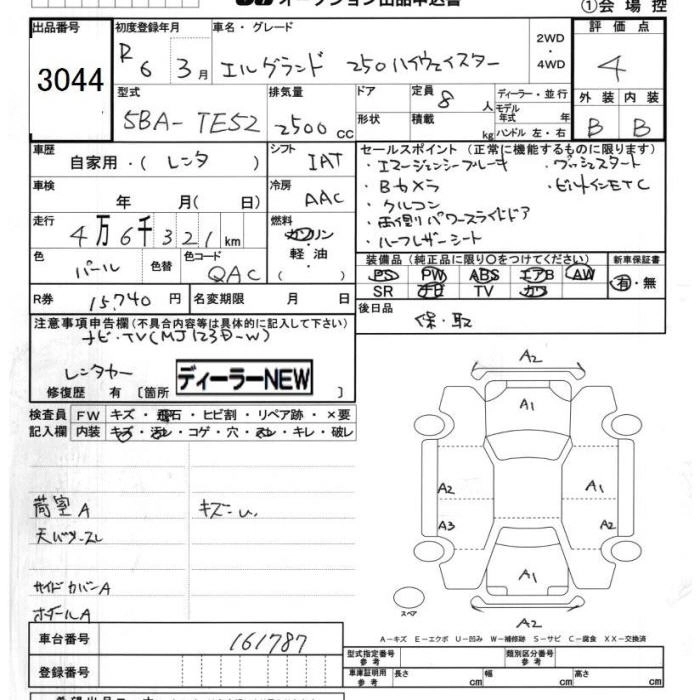 オークション出品申込書
①会場控
出品番号 3044
初度登録年月 R6 3月
車名・グレード エルグランド 250ハイウェイスター
2WD・4WD
評価点 4
外装 B 内装 B
型式 5BA-TE52
排気量 2500cc
ドア 形状
定員 8人
積載 kg
ディーラー・並行
モデル年式 年
ハンドル 左・右
車歴 自家用・(レンタ)
シフト IAT
車検 年 月( 日)
冷房 AAC
走行 4万6千321km
燃料 ガソリン・軽油・( )
色 パール
色替
色コード QAC
R券 15,740円
名変期限 月 日
セールスポイント (正常に機能するものに限ります)
・エマージェンシーブレーキ ・プッシュスタート
・Bカメラ ・ビルトインETC
・クルコン
・両側パワースライドドア
・ハーフレザーシート
装備品 (純正品に限り○をつけてください)
新車保証書
PS PW ABS エアB AW
SR ナビ TV カワ
有・無
後日品
保・取
注意事項申告欄(不具合内容等は具体的に記入して下さい)
ナビ・TV(MJ123D-W)
レンタカー
ディーラーNEW
修復歴 有〔箇所 〕
検査員記入欄
FW キズ・飛石・ヒビ割・リペア跡・×要
内装 キズ・汚レ・コゲ・穴・スレ・キレ・破レ
荷室A キズ
サイドカバーA
ホイールA
A2
A1
A2
A1
A3
A2
A1
A2
スペア
A-キズ E-エクボ U-凹み W-補修跡 S-サビ C-腐食 XX-交換済
車台番号 161787
登録番号
型式指定番号 参考
類別区分番号 参考
車庫証明用 参考
長さ cm 幅 cm 高さ cm